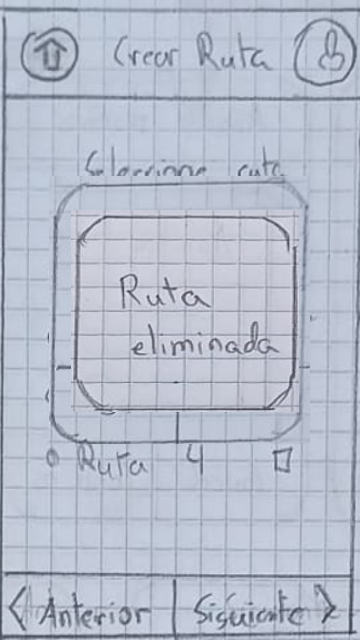 Crear Ruta
Selecciona ruta
Ruta
eliminada
Ruta 4
< Anterior
Siguiente >